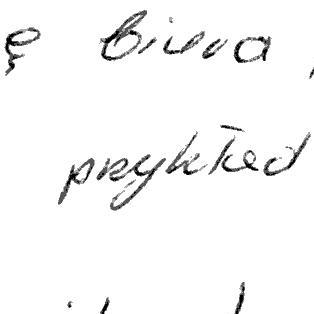 ę biura,
przykład